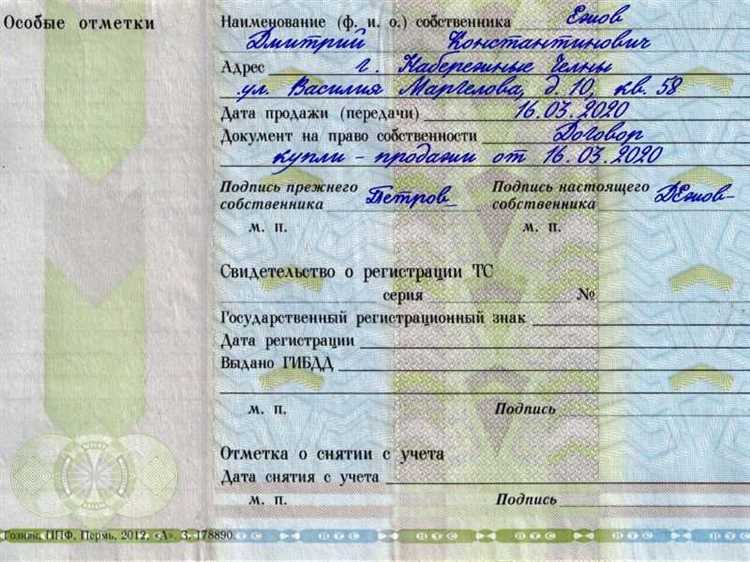 Особые отметки
Наименование (ф. и. о.) собственника Ежов
Дмитрий Константинович
Адрес г. Набережные Челны
ул. Василия Маргелова, д. 10, кв. 58
Дата продажи (передачи) 16.03.2020
Документ на право собственности Договор
купли - продажи от 16.03.2020
Подпись прежнего собственника Петров
Подпись настоящего собственника ДЕжов
м. п. м. п.
Свидетельство о регистрации ТС
серия №
Государственный регистрационный знак
Дата регистрации
Выдано ГИБДД
м. п. Подпись
Отметка о снятии с учета
Дата снятия с учета
м. п. Подпись
Гознак, ППФ, Пермь, 2012, «А». З. 178890.